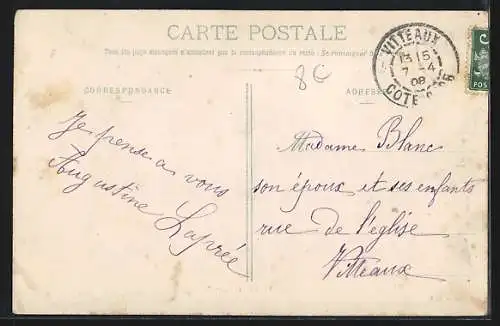 CARTE POSTALE
Tous les pays étrangers n'acceptent pas la correspondance au recto : Se renseigner
CORRESPONDANCE
ADRESSE
8€
VITTEAUX
13 15
7 - 4
08
COTE D'OR
POS
Je pense a vous
Augustine Laprée
Madame Blanc
son époux et ses enfants
rue de l'eglise
Vitteaux